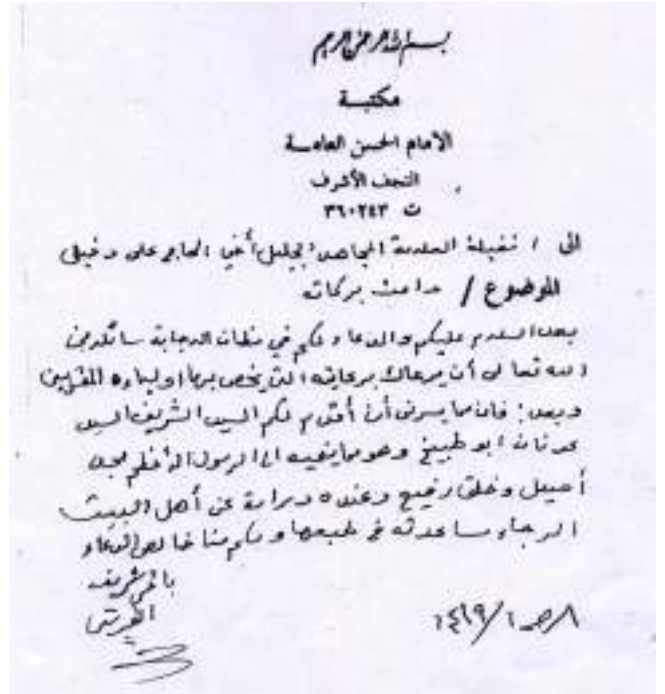 بسم الله الرحمن الرحيم
مكتبة
الامام الحسن العامة
النجف الأشرف
ت ٣٦٠٢٤٣
الى / فضيلة العلامة المجاهد الجليل أخي الحاج علي دخيل
الموضوع / دامت بركاته
بعد السلام عليكم والدعاء لكم في مظان الاجابة سائلا من
الله تعالى أن يرعاك برعايته التي يخص بها اولياءه المقربين
وبعد : فان مما يسرني أن أقدم لكم السيد الشريف السيد
عدنان ابو طبيخ وهو من الرسول الأعظم مجد
أصيل وخلق رفيع وعنده دراسة عن أهل البيت
الرجاء مساعدته في طبعها ولكم منا خالص الدعاء
باقر شريف
القرشي
٨/ص١/١٤١٩